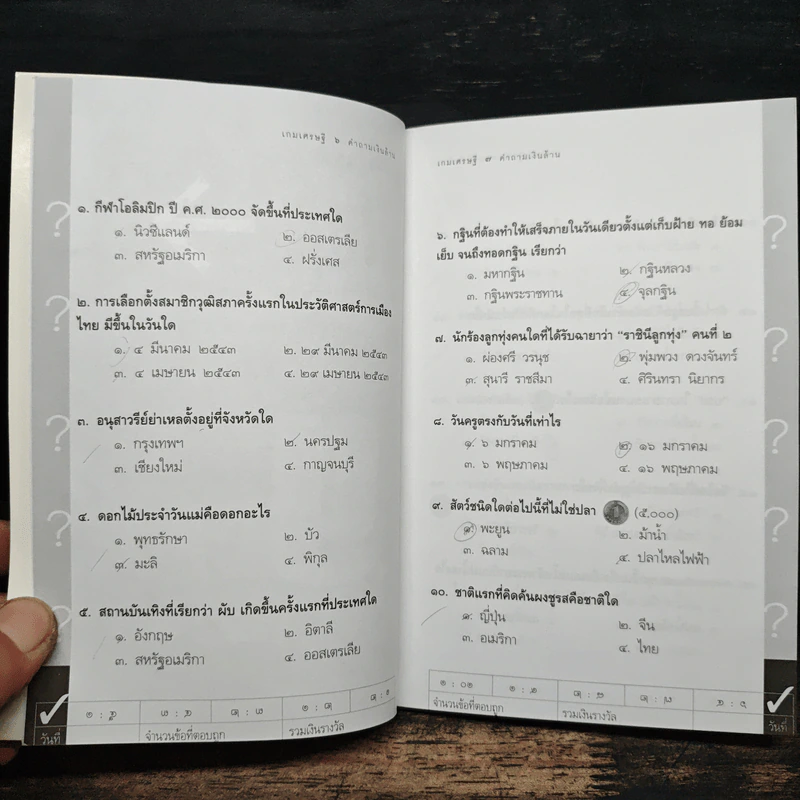 เกมเศรษฐี ๖ คำถามเงินล้าน
๑. กีฬาโอลิมปิก ปี ค.ศ. ๒๐๐๐ จัดขึ้นที่ประเทศใด
๑. นิวซีแลนด์ ๒. ออสเตรเลีย
๓. สหรัฐอเมริกา ๔. ฝรั่งเศส
๒. การเลือกตั้งสมาชิกวุฒิสภาครั้งแรกในประวัติศาสตร์การเมือง
ไทย มีขึ้นในวันใด
๑. ๔ มีนาคม ๒๕๔๓ ๒. ๒๙ มีนาคม ๒๕๔๓
๓. ๔ เมษายน ๒๕๔๓ ๔. ๒๙ เมษายน ๒๕๔๓
๓. อนุสาวรีย์ย่าเหลตั้งอยู่ที่จังหวัดใด
๑. กรุงเทพฯ ๒. นครปฐม
๓. เชียงใหม่ ๔. กาญจนบุรี
๔. ดอกไม้ประจำวันแม่คือดอกอะไร
๑. พุทธรักษา ๒. บัว
๓. มะลิ ๔. พิกุล
๕. สถานบันเทิงที่เรียกว่า ผับ เกิดขึ้นครั้งแรกที่ประเทศใด
๑. อังกฤษ ๒. อิตาลี
๓. สหรัฐอเมริกา ๔. ออสเตรเลีย
วันที่ จำนวนข้อที่ตอบถูก รวมเงินรางวัล
เกมเศรษฐี ๗ คำถามเงินล้าน
๖. กฐินที่ต้องทำให้เสร็จภายในวันเดียวตั้งแต่เก็บฝ้าย ทอ ย้อม
เย็บ จนถึงทอดกฐิน เรียกว่า
๑. มหากฐิน ๒. กฐินหลวง
๓. กฐินพระราชทาน ๔. จุลกฐิน
๗. นักร้องลูกทุ่งคนใดที่ได้รับฉายาว่า “ราชินีลูกทุ่ง” คนที่ ๒
๑. ผ่องศรี วรนุช ๒. พุ่มพวง ดวงจันทร์
๓. สุนารี ราชสีมา ๔. ศิรินทรา นิยากร
๘. วันครูตรงกับวันที่เท่าไร
๑. ๖ มกราคม ๒. ๑๖ มกราคม
๓. ๖ พฤษภาคม ๔. ๑๖ พฤษภาคม
๙. สัตว์ชนิดใดต่อไปนี้ที่ไม่ใช่ปลา (๕,๐๐๐)
๑. พะยูน ๒. ม้าน้ำ
๓. ฉลาม ๔. ปลาไหลไฟฟ้า
๑๐. ชาติแรกที่คิดค้นผงชูรสคือชาติใด
๑. ญี่ปุ่น ๒. จีน
๓. อเมริกา ๔. ไทย
จำนวนข้อที่ตอบถูก รวมเงินรางวัล วันที่